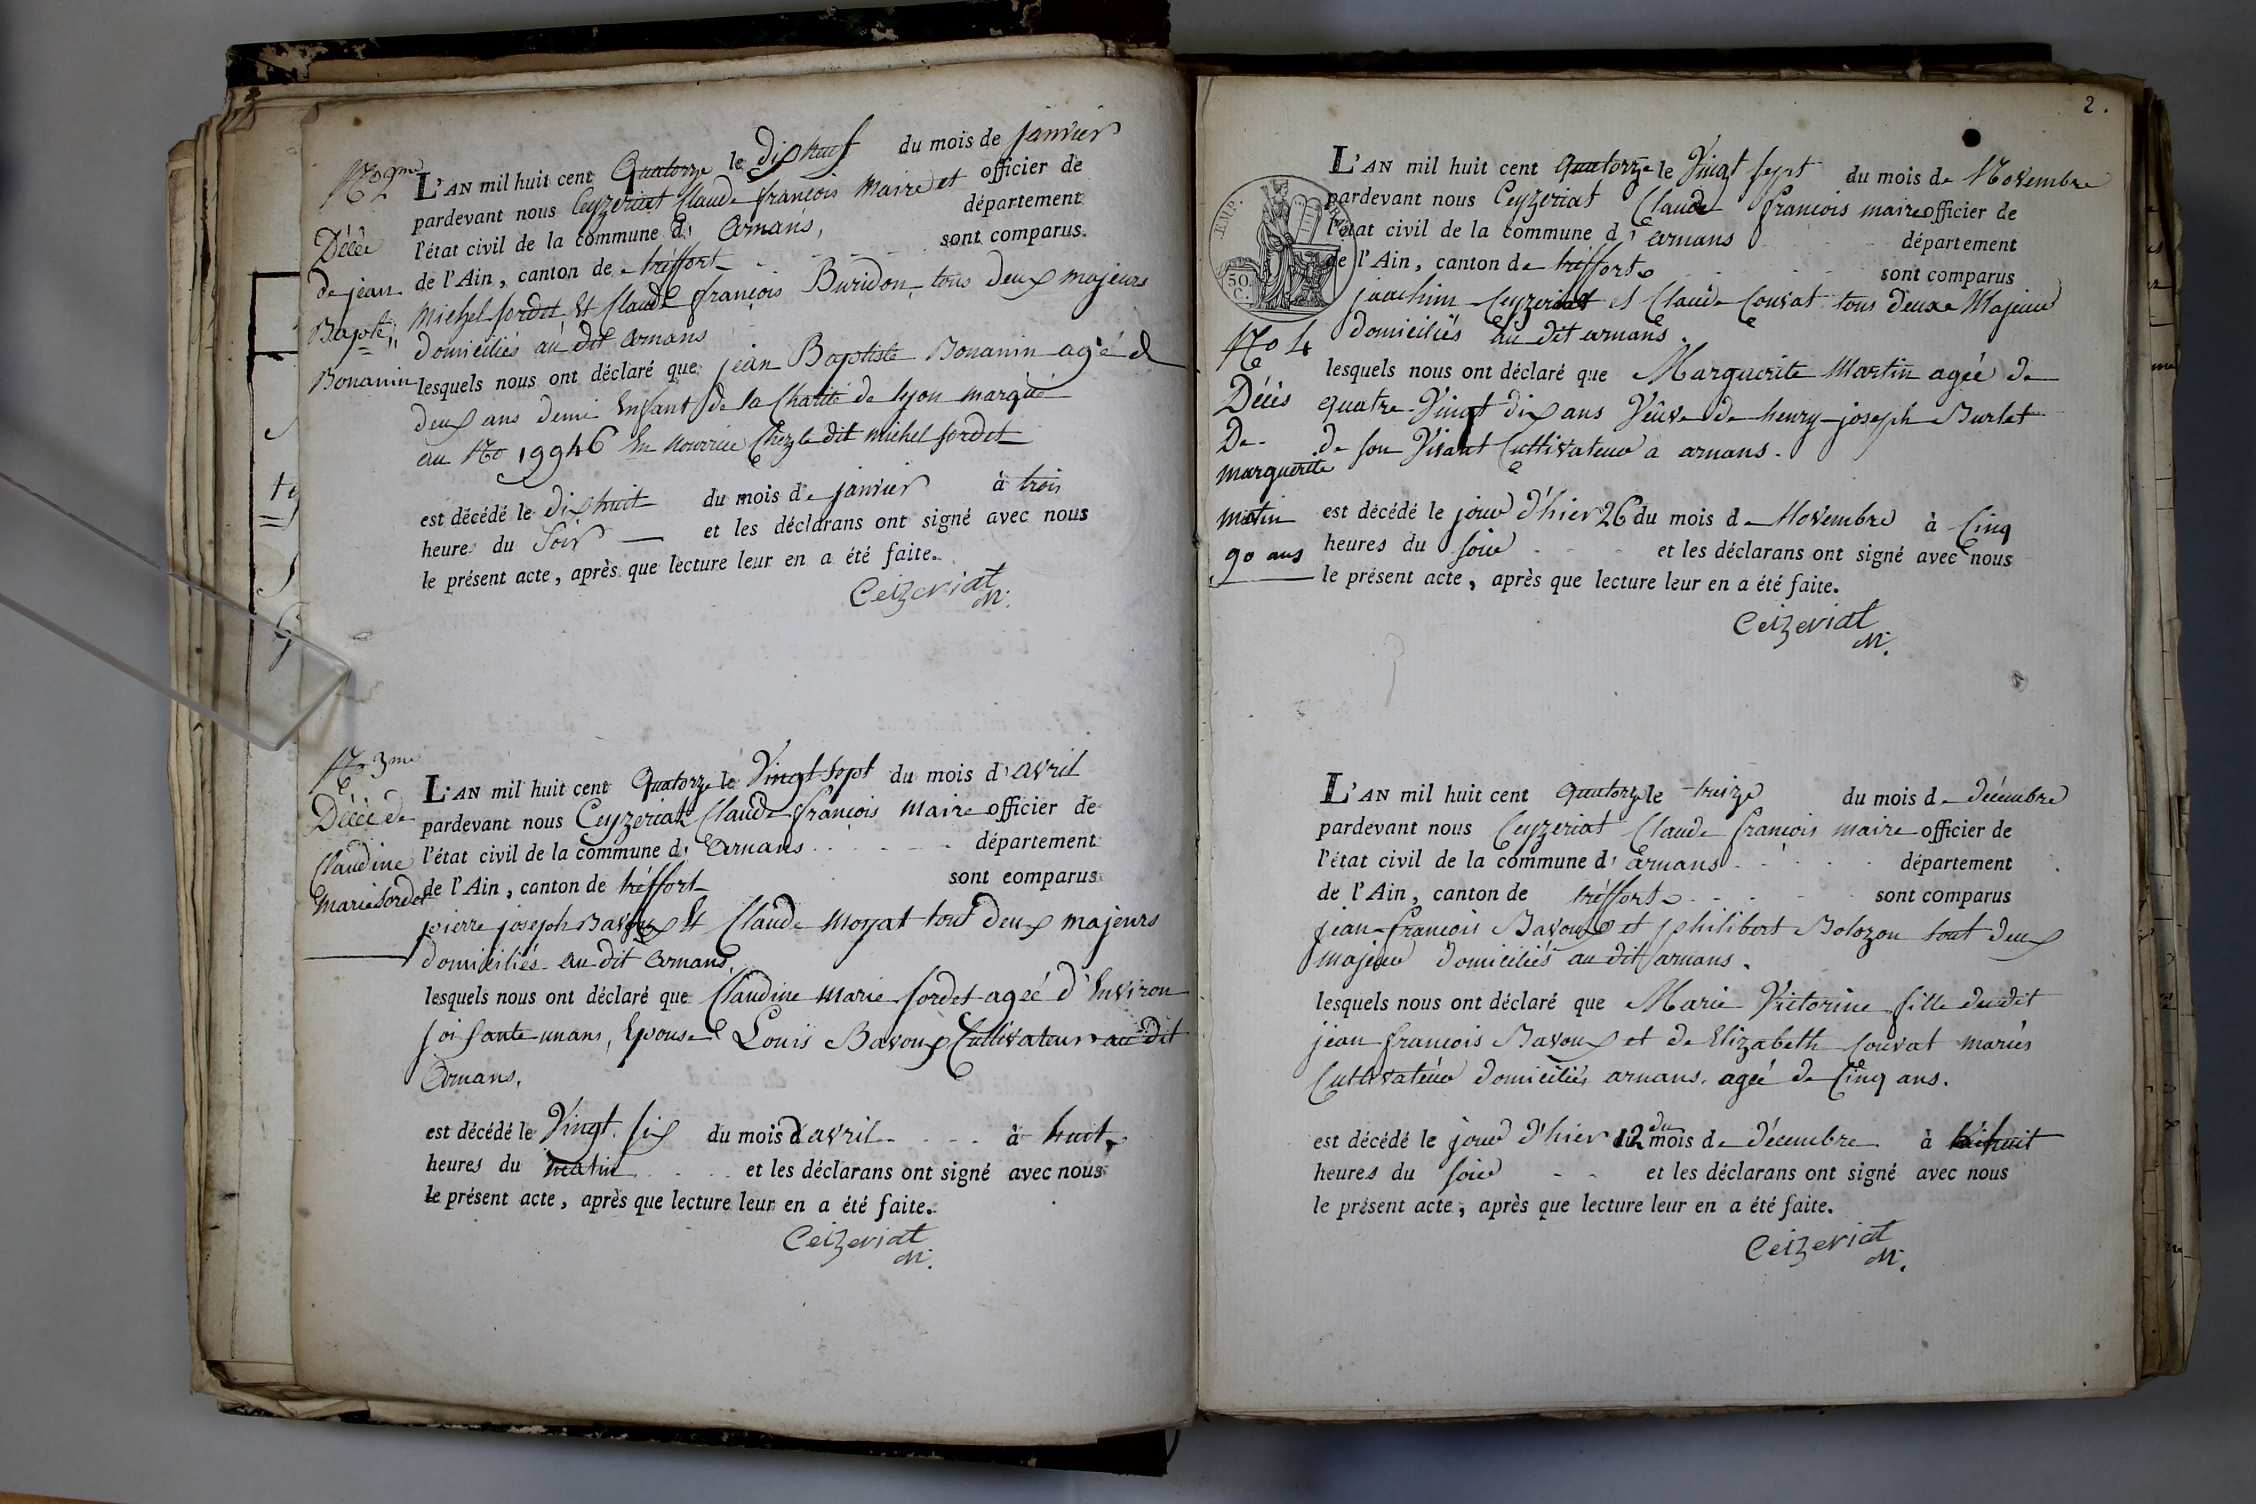 No 2me
Décè
de jean
Bapte
Bonanin
L'AN mil huit cent Quatorze le Dix huit du mois de janvier
pardevant nous Ceyzeriat Claude françois Maire et officier de
l'état civil de la commune d' Arnans, département
de l'Ain, canton de tréffort sont comparus
Michel Sordet Et Claude françois Buridon tous deux majeurs
domiciliés au dit Arnans
lesquels nous ont déclaré que jean Baptiste Bonanin agé de
deux ans demi Enfant de la Charité de Lyon marqué
au No 19946 En nourrice Chez le dit Michel Sordet
est décédé le dix huit du mois de janvier à trois
heures du Soir et les déclarans ont signé avec nous
le présent acte, après que lecture leur en a été faite.
Ceizeriat
M.
No 3me
Décè de
Claudine
Marie Sordet
L'AN mil huit cent Quatorze le Vingt Sept du mois d'avril
pardevant nous Ceyzeriat Claude françois Maire officier de
l'état civil de la commune d' Arnans département
de l'Ain, canton de tréffort sont comparus
pierre joseph Bavoux Et Claude Moyat tout deux majeurs
domiciliés au dit Arnans,
lesquels nous ont déclaré que Claudine Marie Sordet agéé d'Environ
soisante un ans, Epouse Louis Bavoux Cultivateur au dit
Arnans,
est décédé le Vingt six du mois d avril à huit
heures du matin et les déclarans ont signé avec nous
le présent acte, après que lecture leur en a été faite.
Ceizeriat
M.
2.
EMP. FRAN.
50.
C.
L'AN mil huit cent quatorze le Vingt sept du mois de Novembre
pardevant nous Ceyzeriat Claude françois maire officier de
l'état civil de la commune d' arnans département
de l'Ain, canton de tréffort sont comparus
joachim Ceyzeriat et Claude Couvat tous deux Majeur
domiciliés au dit arnans.
No 4
Décès
De
marguerite
Matin
90 ans
lesquels nous ont déclaré que Marguerite Martin agéé de
quatre Vingt dix ans Vêuve de henry joseph Burlet
de son Vivant Cultivateur a arnans.
est décédé le jour d'hier 26 du mois de Novembre à Cinq
heures du soir et les déclarans ont signé avec nous
le présent acte, après que lecture leur en a été faite.
Ceizeriat
M.
L'AN mil huit cent quatorze le treize du mois de décembre
pardevant nous Ceyzeriat Claude françois maire officier de
l'état civil de la commune d' arnans département
de l'Ain, canton de tréffort sont comparus
jean françois Bavoux et philibert Bolozon tout deux
majeur domiciliés au dit arnans.
lesquels nous ont déclaré que Marie Victorine fille dudit
jean françois Bavoux et de Elizabeth Couvat mariés
Cultivateur domiciliés arnans. agéé de Cinq ans.
est décédé le jour d'hier 12 du mois de décembre à huit
heures du soir et les déclarans ont signé avec nous
le présent acte, après que lecture leur en a été faite.
Ceizeriat
M.